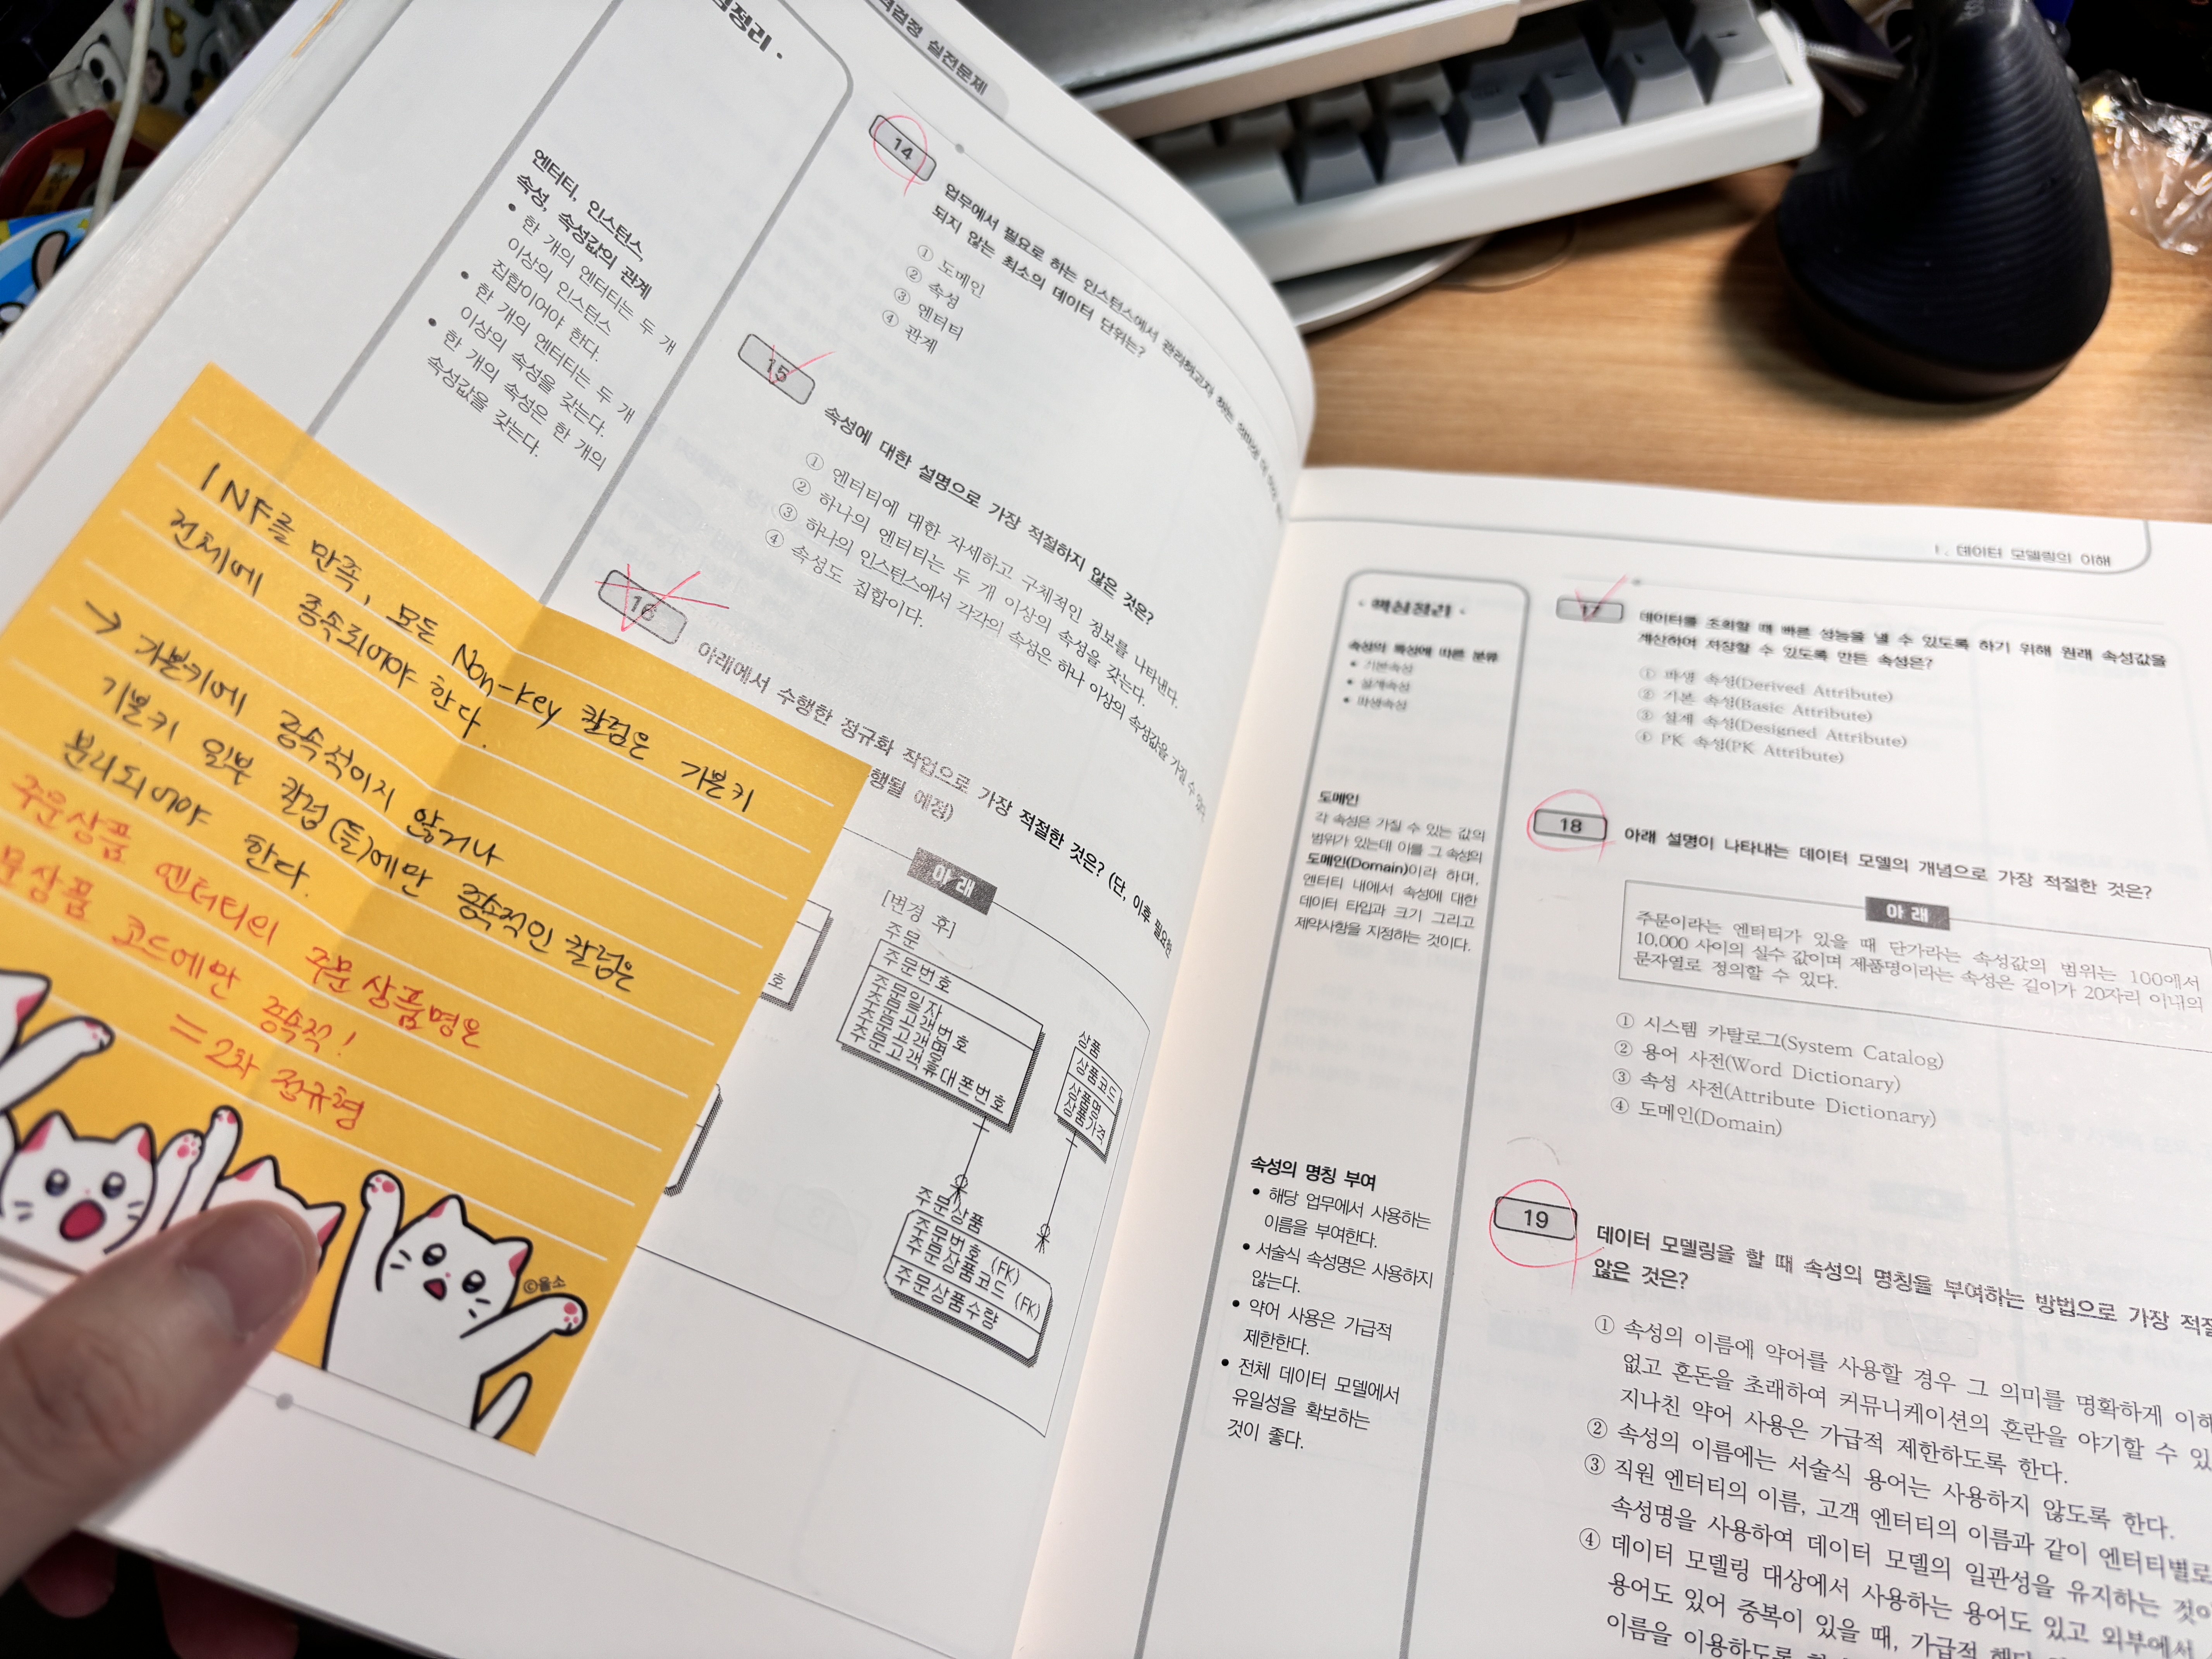 격검정 실전문제
엔터티, 인스턴스
속성, 속성값의 관계
• 한 개의 엔터티는 두 개
이상의 인스턴스
집합이어야 한다.
• 한 개의 엔터티는 두 개
이상의 속성을 갖는다.
• 한 개의 속성은 한 개의
속성값을 갖는다.
14
업무에서 필요로 하는 인스턴스에서 관리하고자 하는
되지 않는 최소의 데이터 단위는?
① 도메인
② 속성
③ 엔터티
④ 관계
15
속성에 대한 설명으로 가장 적절하지 않은 것은?
① 엔터티에 대한 자세하고 구체적인 정보를 나타낸다.
② 하나의 엔터티는 두 개 이상의 속성을 갖는다.
③ 하나의 인스턴스에서 각각의 속성은 하나 이상의 속성값을 가질 수 있다.
④ 속성도 집합이다.
16
아래에서 수행한 정규화 작업으로 가장 적절한 것은? (단, 이후 필요한
행될 예정)
아 래
[변경 후]
주문
주문번호
주문일자
주문고객번호
주문고객명
주문고객휴대폰번호
상품
상품코드
상품명
상품가격
주문상품
주문번호 (FK)
주문상품코드 (FK)
주문상품수량
호
1NF를 만족, 모든 Non-key 칼럼은 기본키
전체에 종속되어야 한다.
→ 기본키에 종속적이지 않거나
기본키 일부 칼럼(들)에만 종속적인 칼럼은
분리되어야 한다.
주문상품 엔터티의 주문상품명은
문상품 코드에만 종속적!
= 2차 정규형
©울소
1. 데이터 모델링의 이해
• 핵심정리 •
속성의 특성에 따른 분류
• 기본속성
• 설계속성
• 파생속성
도메인
각 속성은 가질 수 있는 값의
범위가 있는데 이를 그 속성의
도메인(Domain)이라 하며,
엔터티 내에서 속성에 대한
데이터 타입과 크기 그리고
제약사항을 지정하는 것이다.
속성의 명칭 부여
• 해당 업무에서 사용하는
이름을 부여한다.
• 서술식 속성명은 사용하지
않는다.
• 약어 사용은 가급적
제한한다.
• 전체 데이터 모델에서
유일성을 확보하는
것이 좋다.
17
데이터를 조회할 때 빠른 성능을 낼 수 있도록 하기 위해 원래 속성값을
계산하여 저장할 수 있도록 만든 속성은?
① 파생 속성(Derived Attribute)
② 기본 속성(Basic Attribute)
③ 설계 속성(Designed Attribute)
④ PK 속성(PK Attribute)
18
아래 설명이 나타내는 데이터 모델의 개념으로 가장 적절한 것은?
아 래
주문이라는 엔터티가 있을 때 단가라는 속성값의 범위는 100에서
10,000 사이의 실수 값이며 제품명이라는 속성은 길이가 20자리 이내의
문자열로 정의할 수 있다.
① 시스템 카탈로그(System Catalog)
② 용어 사전(Word Dictionary)
③ 속성 사전(Attribute Dictionary)
④ 도메인(Domain)
19
데이터 모델링을 할 때 속성의 명칭을 부여하는 방법으로 가장 적절
않은 것은?
① 속성의 이름에 약어를 사용할 경우 그 의미를 명확하게 이해
없고 혼돈을 초래하여 커뮤니케이션의 혼란을 야기할 수 있
지나친 약어 사용은 가급적 제한하도록 한다.
② 속성의 이름에는 서술식 용어는 사용하지 않도록 한다.
③ 직원 엔터티의 이름, 고객 엔터티의 이름과 같이 엔터티별로
속성명을 사용하여 데이터 모델의 일관성을 유지하는 것이
④ 데이터 모델링 대상에서 사용하는 용어도 있고 외부에서
용어도 있어 중복이 있을 때, 가급적
이름을 이용하도록